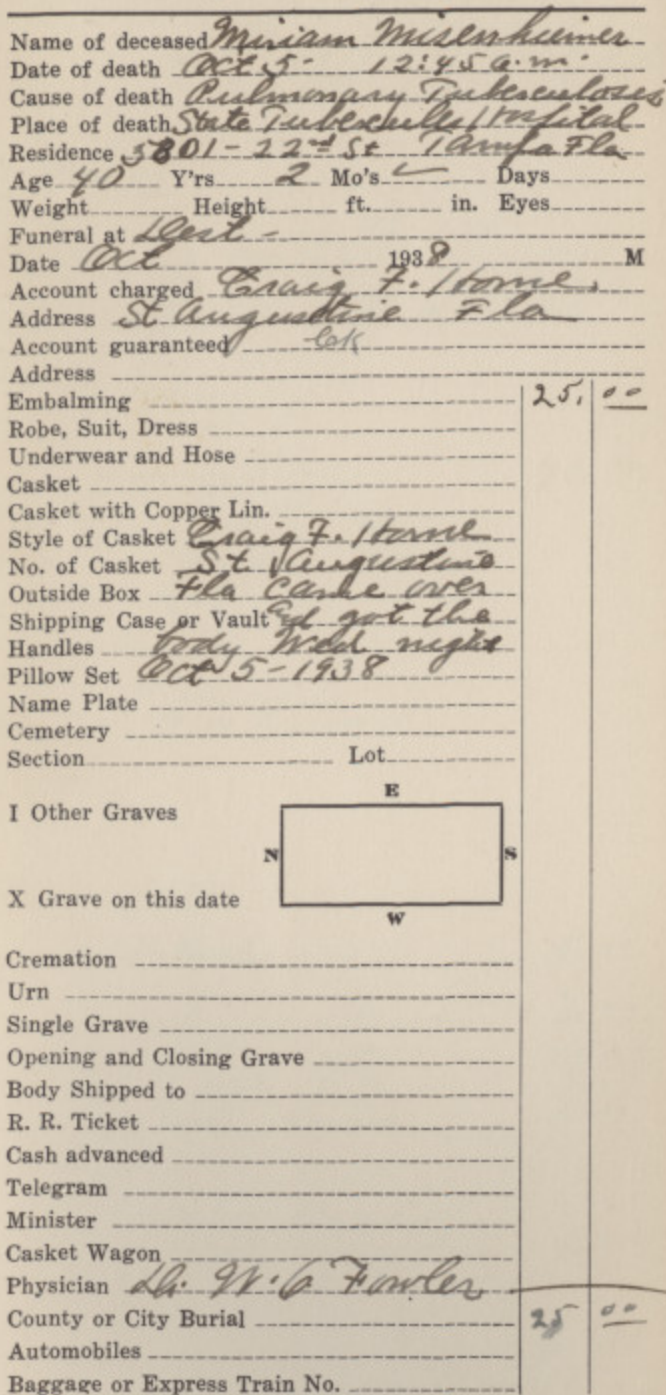 Name of deceased Miriam Misenheimer
Date of death Oct 5- 12:45 a.m.
Cause of death Pulmonary Tuberculosis
Place of death State Tuberculos Hospital
Residence 5801-22nd St Tampa Fla
Age 40 Y'rs 2 Mo's ✓ Days
Weight Height ft. in. Eyes
Funeral at
Date Oct 1938 M
Account charged Craig F. Horne.
Address St Augustine Fla
Account guaranteed
Address
Embalming 25. 00
Robe, Suit, Dress
Underwear and Hose
Casket
Casket with Copper Lin.
Style of Casket Craig F. Horne
No. of Casket St Augustine
Outside Box Fla came over
Shipping Case or Vault got the
Handles body Wed night
Pillow Set Oct 5-1938
Name Plate
Cemetery
Section Lot
E
I Other Graves
N S
X Grave on this date
W
Cremation
Urn
Single Grave
Opening and Closing Grave
Body Shipped to
R. R. Ticket
Cash advanced
Telegram
Minister
Casket Wagon
Physician Dr. W. C Fowler
County or City Burial 25 00
Automobiles
Baggage or Express Train No.